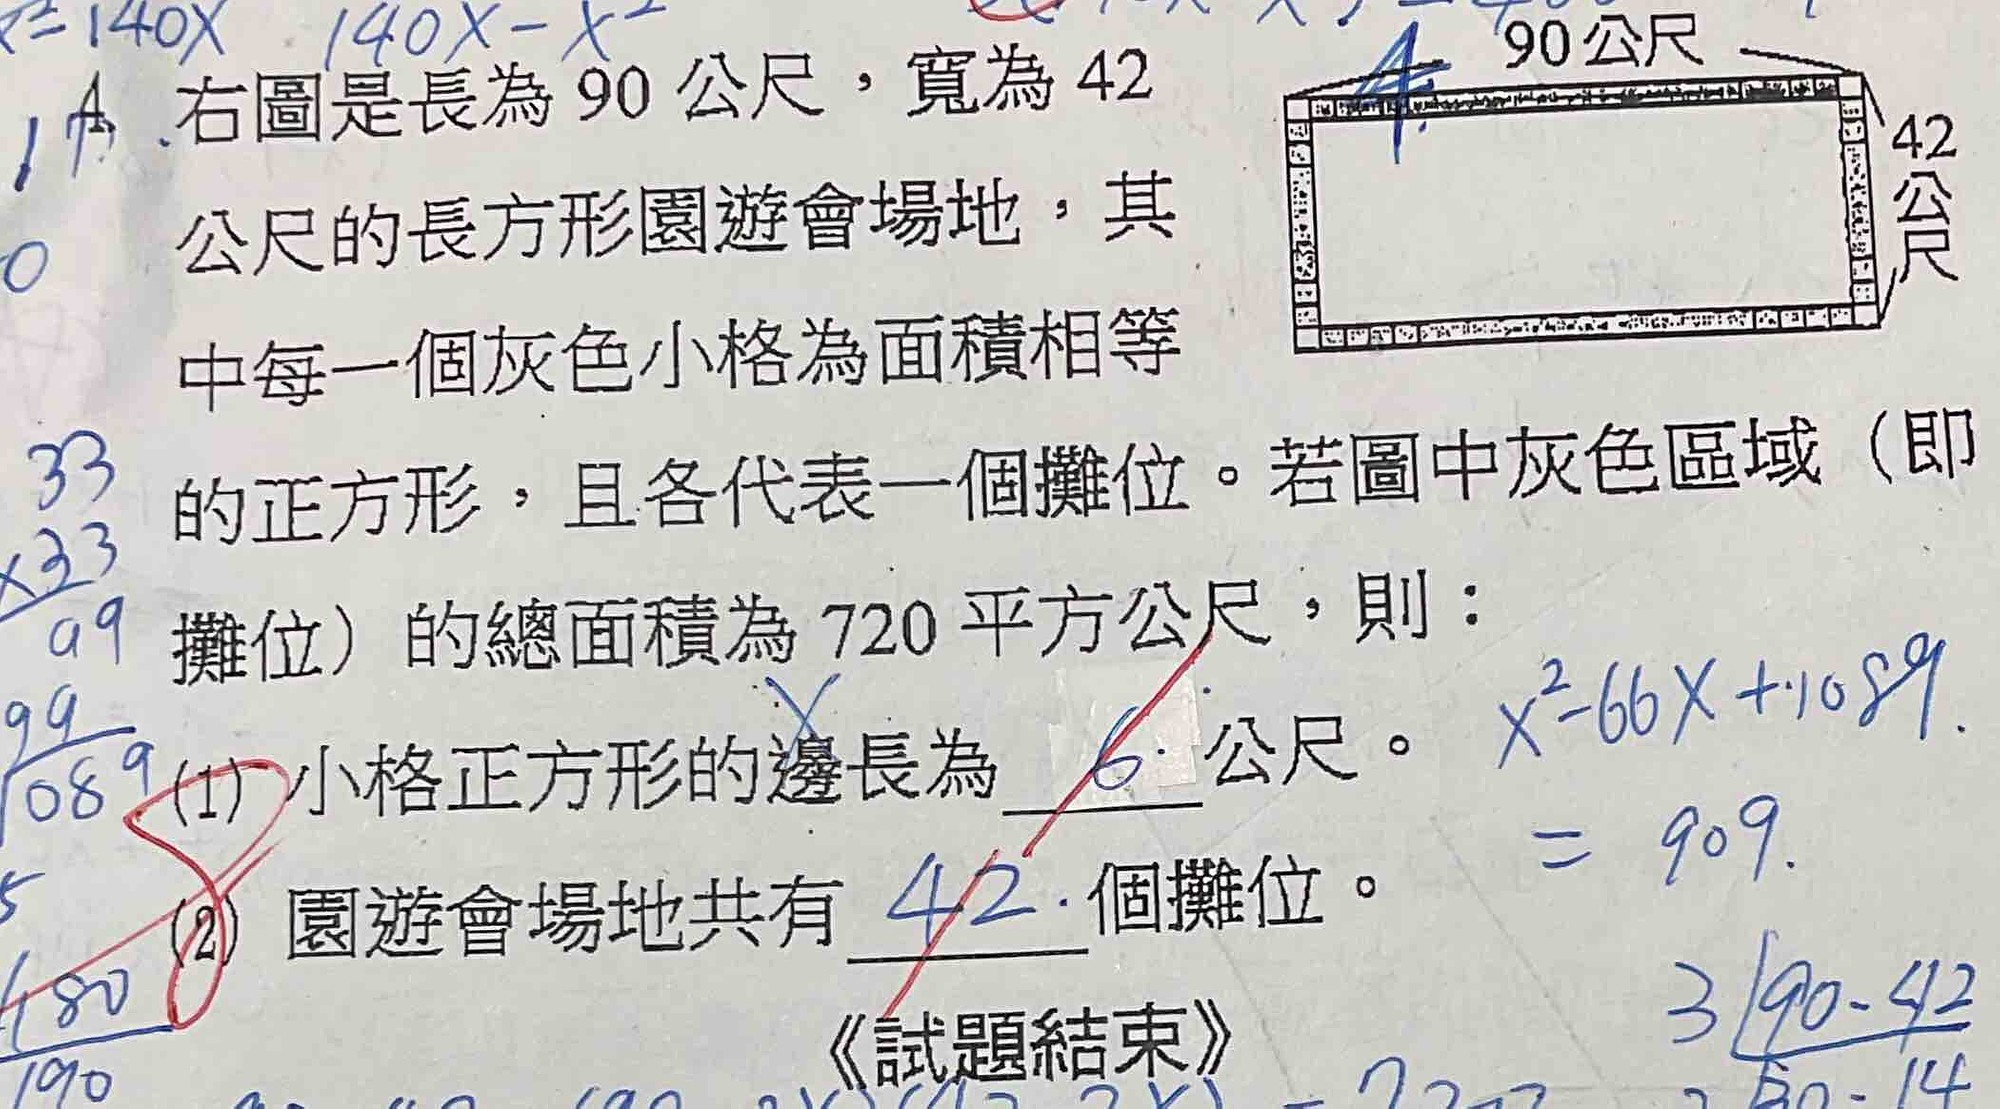 140X 140X - X²
90公尺
4.
右圖是長為 90 公尺，寬為 42
42公尺
公尺的長方形園遊會場地，其
0
中每一個灰色小格為面積相等
33
的正方形，且各代表一個攤位。若圖中灰色區域（即
×33
99
攤位）的總面積為 720 平方公尺，則：
99
X
X²-66X+1089.
1089
(1) 小格正方形的邊長為 6. 公尺。
= 909.
(2) 園遊會場地共有 42. 個攤位。
480
3 90-42
《試題結束》
190
30-14